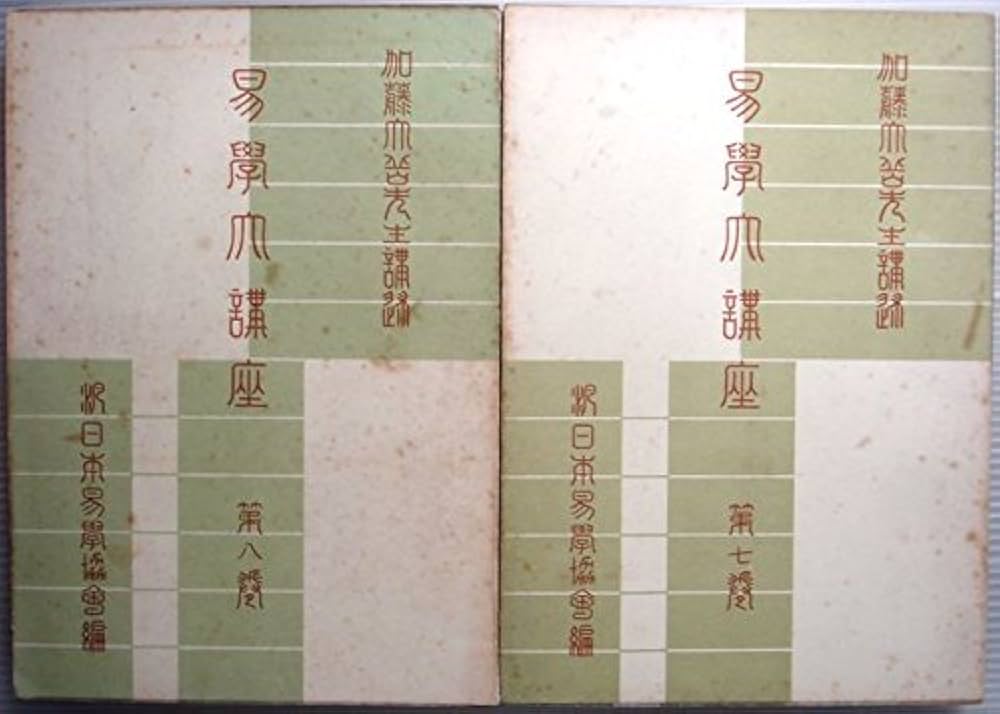 加藤大岳先生講述
易學大講座
第七卷
汎日本易學協會編
加藤大岳先生講述
易學大講座
第八卷
汎日本易學協會編